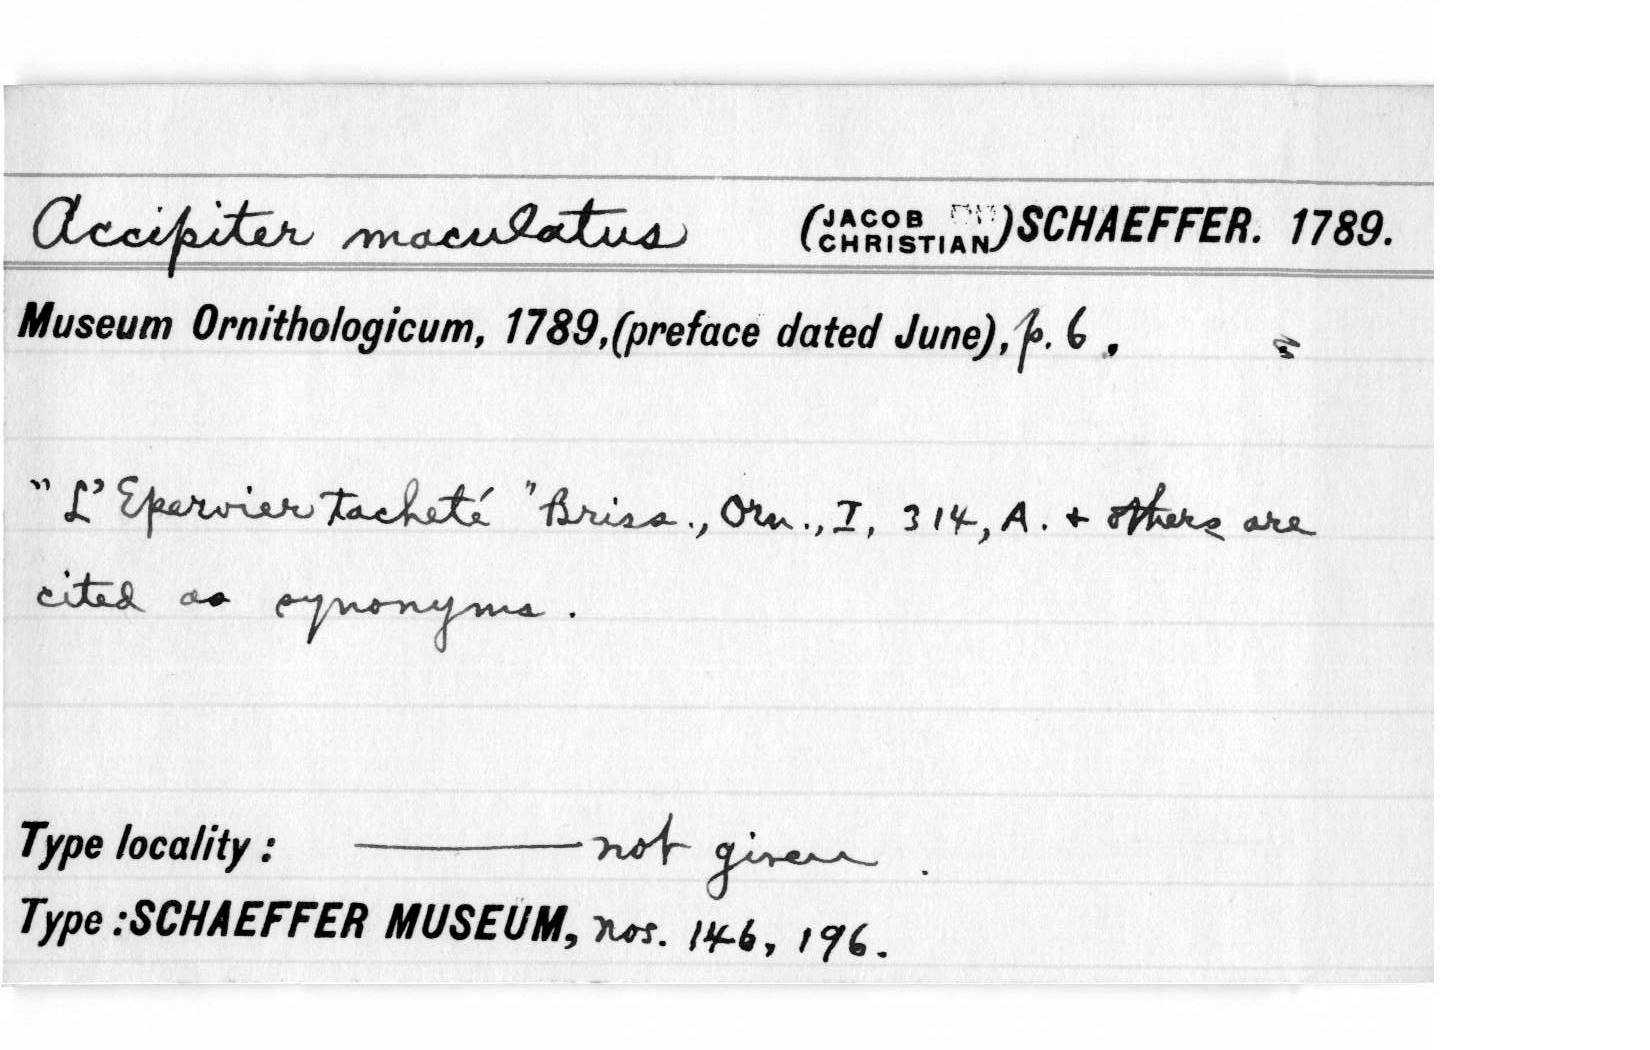 Accipiter maculatus (JACOB CHRISTIAN) SCHAEFFER. 1789.
Museum Ornithologicum, 1789, (preface dated June), p. 6.
"L'Epervier tacheté" Briss., Orn., I, 314, A. + others are
cited as synonyms.
Type locality: ——— not given.
Type: SCHAEFFER MUSEUM, nos. 146, 196.